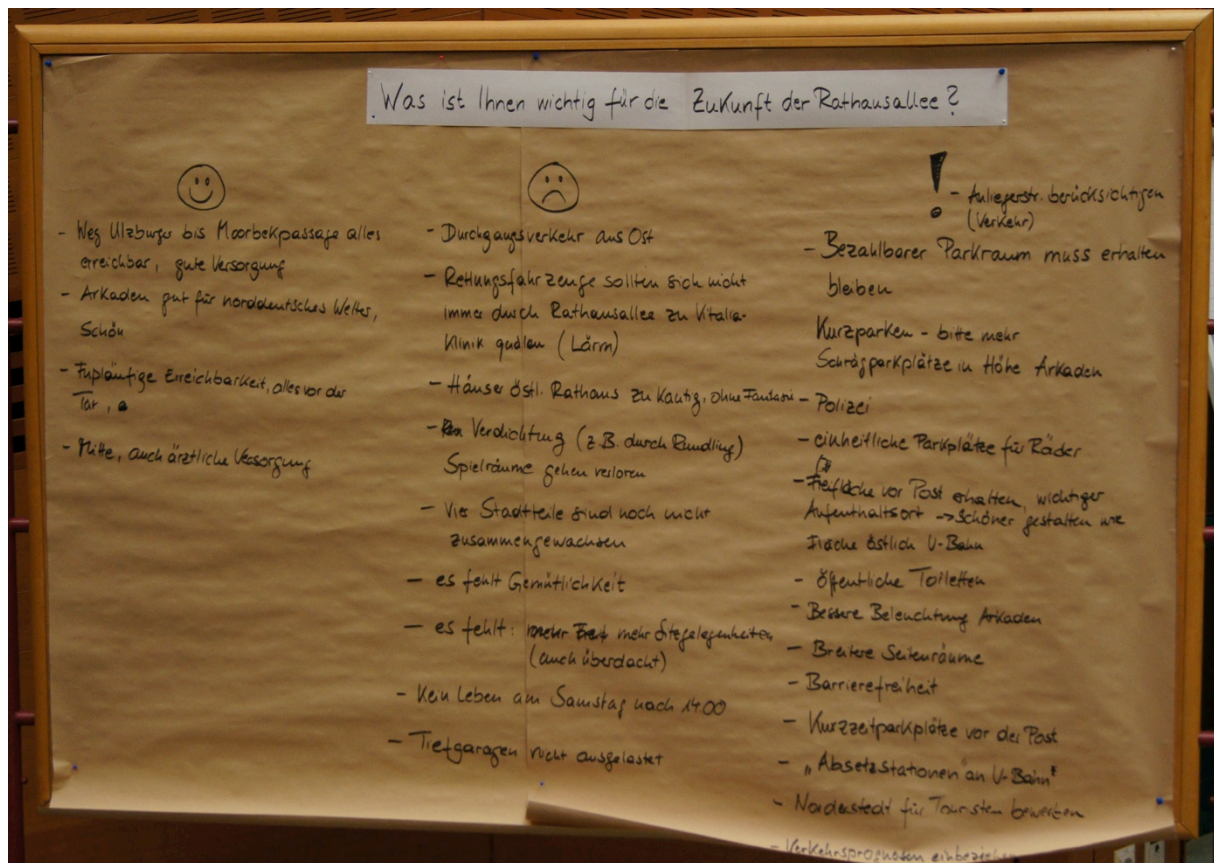 Was ist Ihnen wichtig für die Zukunft der Rathausallee?
- Weg Ulzburger bis Moorbekpassage alles
erreichbar, gute Versorgung
- Arkaden gut für norddeutsches Wetter,
Schön
- Fußläufige Erreichbarkeit, alles vor der
Tür,
- Mitte, auch ärztliche Versorgung
- Durchgangsverkehr aus Ost
- Rettungsfahrzeuge sollten sich nicht
immer durch Rathausallee zu Vitalia-
Klinik quälen (Lärm)
- Häuser östl. Rathaus zu kantig, ohne Fantasie
- Verdichtung (z.B. durch Rundling)
Spielräume gehen verloren
- Vier Stadtteile sind noch nicht
zusammengewachsen
- es fehlt Gemütlichkeit
- es fehlt: mehr Sitzgelegenheiten
(auch überdacht)
- Kein Leben am Samstag nach 14.00
- Tiefgaragen nicht ausgelastet
! - Anliegerstr. berücksichtigen
(Verkehr)
- Bezahlbarer Parkraum muss erhalten
bleiben
Kurzparken - bitte mehr
Schrägparkplätze in Höhe Arkaden
- Polizei
- einheitliche Parkplätze für Räder
- Freifläche vor Post erhalten, wichtiger
Aufenthaltsort -> Schöner gestalten wie
Fläche östlich U-Bahn
- öffentliche Toiletten
- Bessere Beleuchtung Arkaden
- Breitere Seitenräume
- Barrierefreiheit
- Kurzzeitparkplätze vor der Post
- "Absetzstationen an U-Bahn"
- Norderstedt für Touristen bewerben
- Verkehrsprognosen einbeziehen